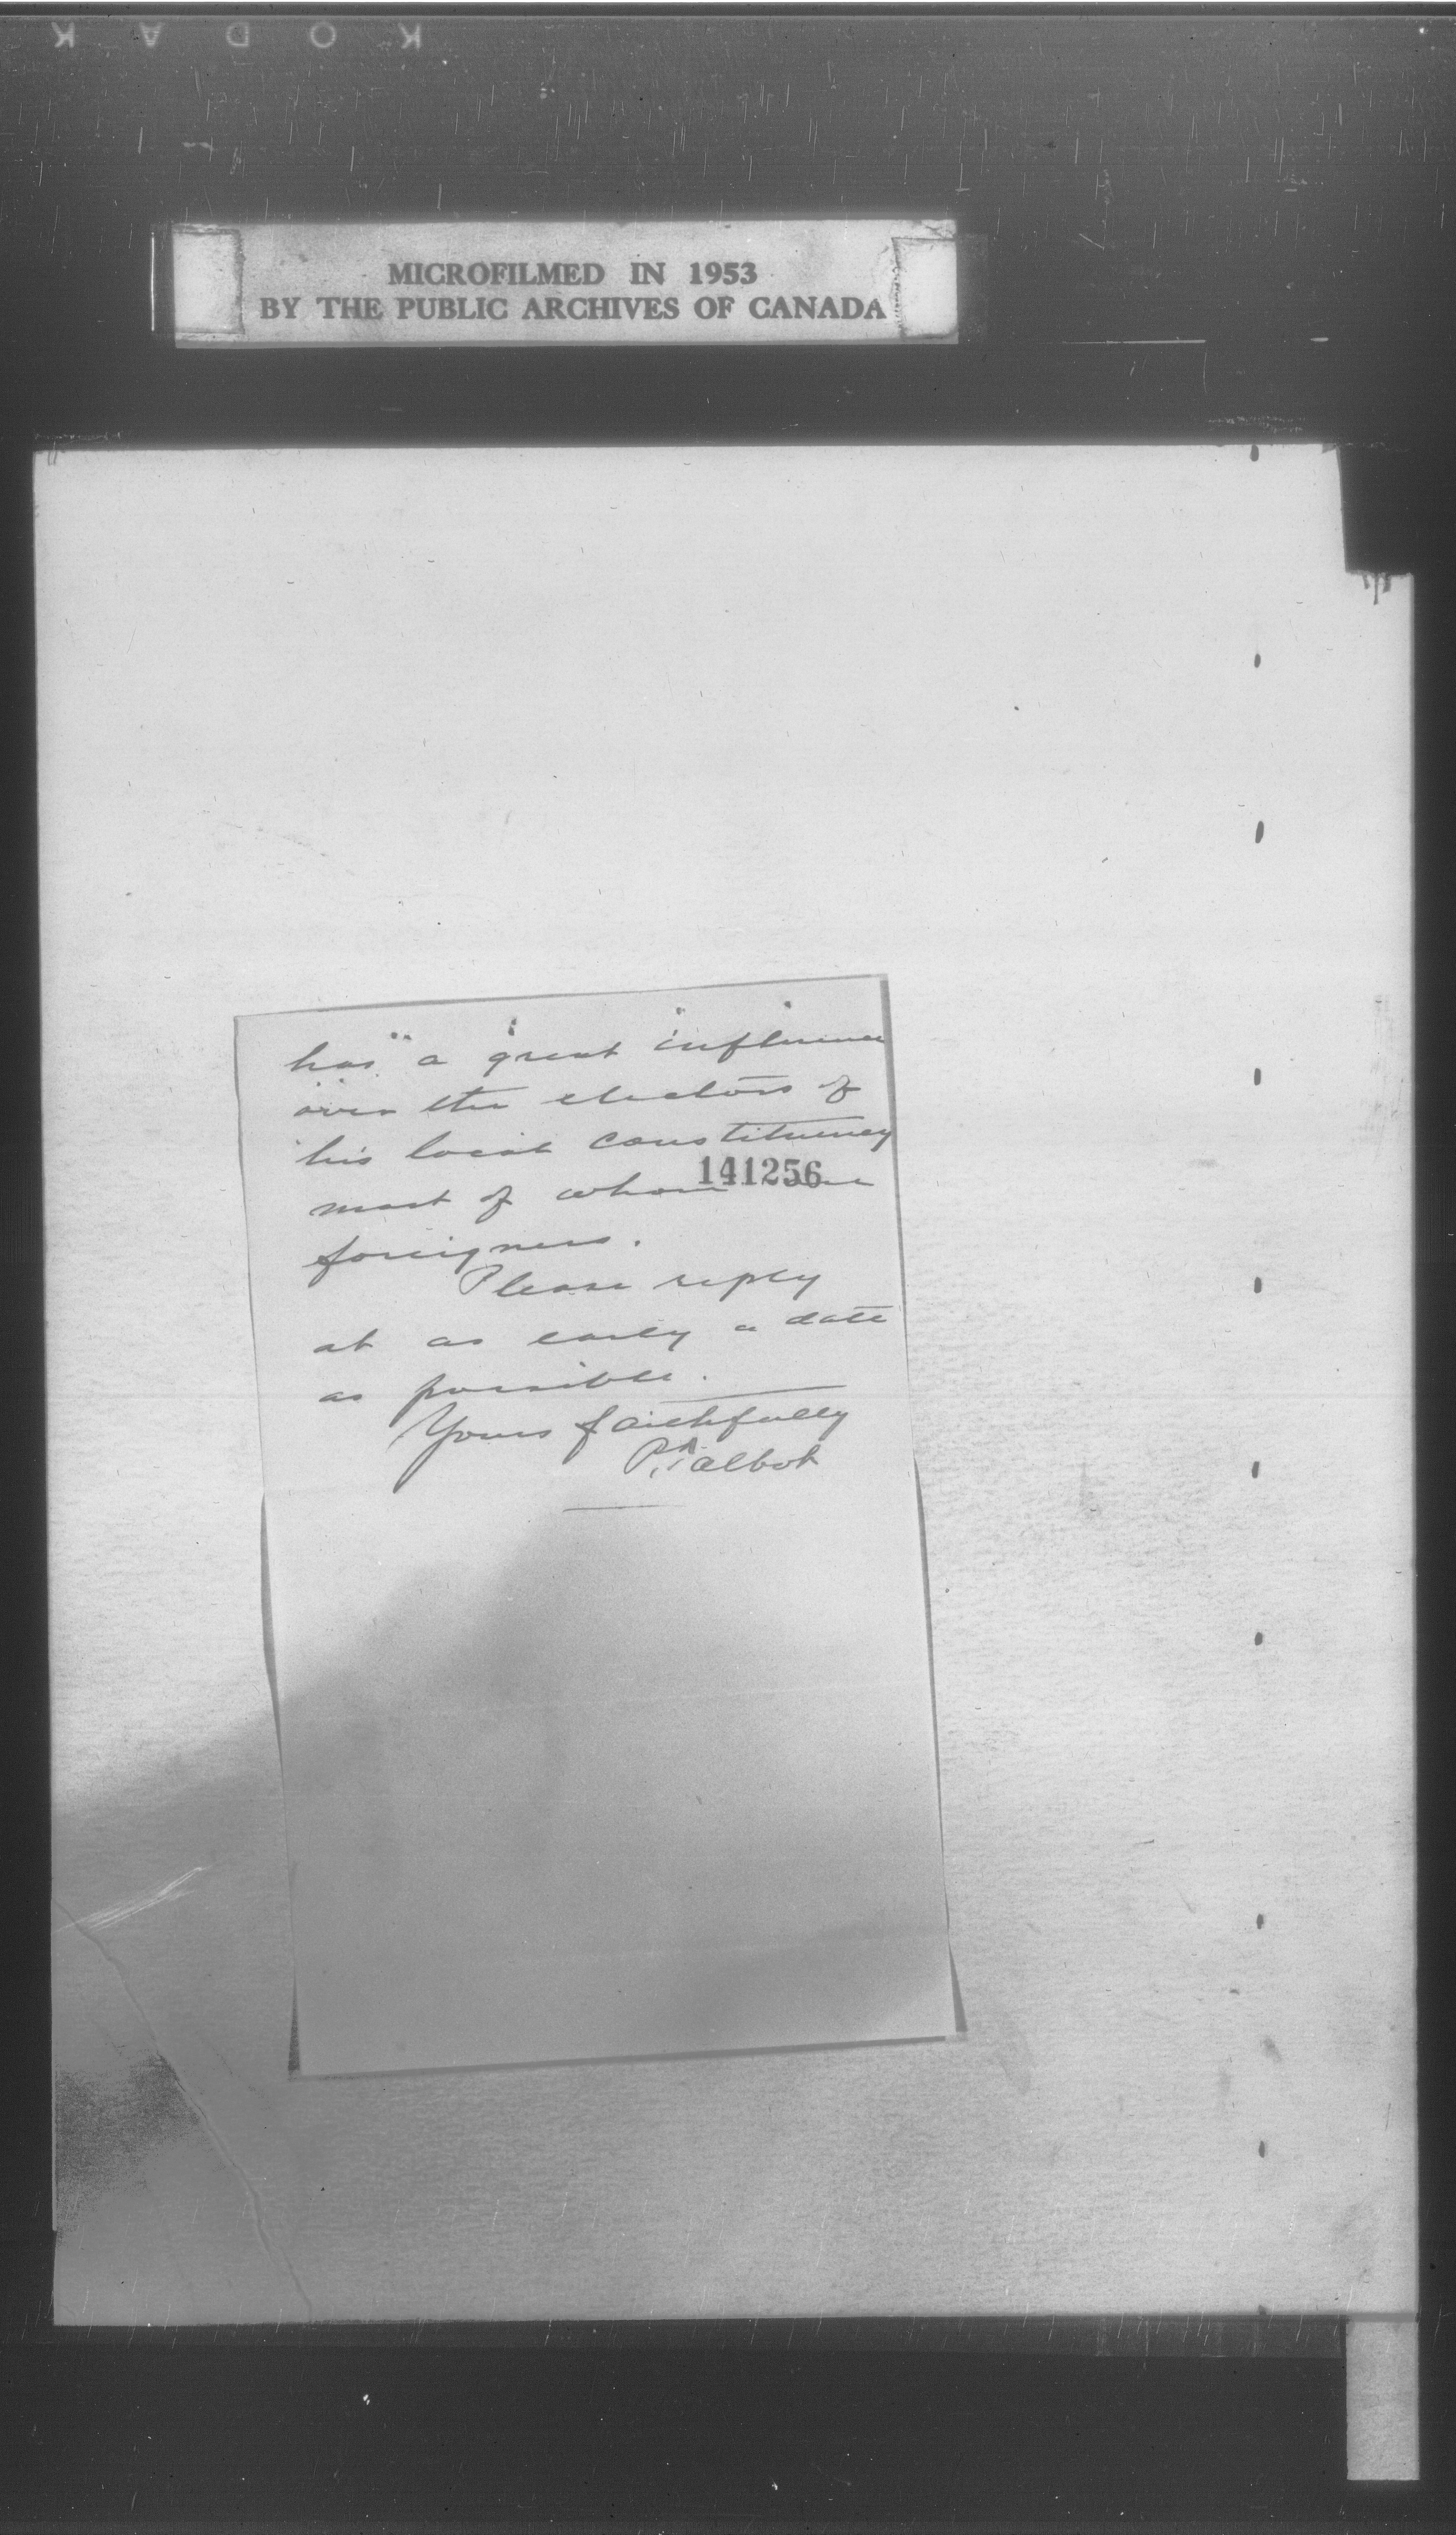 KODAK
MICROFILMED IN 1953
BY THE PUBLIC ARCHIVES OF CANADA
has a great influence
over the electors of
his local constituency
141256
most of whom are
foreigners.
Please reply
at as early a date
as possible.
Yours faithfully
P. Talbot